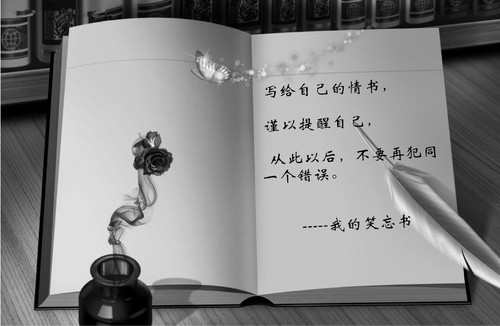 写给自己的情书，
谨以提醒自己，
从此以后，不要再犯同
一个错误。
-----我的笑忘书